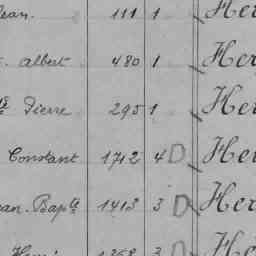 Jean. 111 1 Her
. Albert 480 1 Her
Pierre 295 1 Her
Constant 1712 4 D Her
Jean. Bapte 1413 3 D Her
1368 3 D He